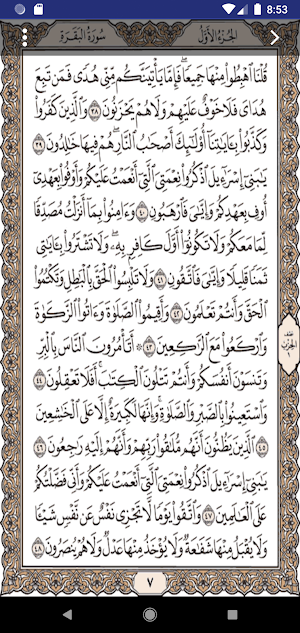 8:53
سُورَةُ البَقَرَةِ الجُزْءُ الأَوَّلُ
قُلْنَا ٱهْبِطُوا۟ مِنْهَا جَمِيعًا ۖ فَإِمَّا يَأْتِيَنَّكُم مِّنِّى هُدًى فَمَن تَبِعَ
هُدَاىَ فَلَا خَوْفٌ عَلَيْهِمْ وَلَا هُمْ يَحْزَنُونَ ٣٨ وَٱلَّذِينَ كَفَرُوا۟
وَكَذَّبُوا۟ بِـَٔايَـٰتِنَآ أُو۟لَـٰٓئِكَ أَصْحَـٰبُ ٱلنَّارِ ۖ هُمْ فِيهَا خَـٰلِدُونَ ٣٩
يَـٰبَنِىٓ إِسْرَٰٓءِيلَ ٱذْكُرُوا۟ نِعْمَتِىَ ٱلَّتِىٓ أَنْعَمْتُ عَلَيْكُمْ وَأَوْفُوا۟ بِعَهْدِىٓ
أُوفِ بِعَهْدِكُمْ وَإِيَّـٰىَ فَٱرْهَبُونِ ٤٠ وَءَامِنُوا۟ بِمَآ أَنزَلْتُ مُصَدِّقًا
لِّمَا مَعَكُمْ وَلَا تَكُونُوٓا۟ أَوَّلَ كَافِرٍۭ بِهِۦ ۖ وَلَا تَشْتَرُوا۟ بِـَٔايَـٰتِى
ثَمَنًا قَلِيلًا وَإِيَّـٰىَ فَٱتَّقُونِ ٤١ وَلَا تَلْبِسُوا۟ ٱلْحَقَّ بِٱلْبَـٰطِلِ وَتَكْتُمُوا۟
ٱلْحَقَّ وَأَنتُمْ تَعْلَمُونَ ٤٢ وَأَقِيمُوا۟ ٱلصَّلَوٰةَ وَءَاتُوا۟ ٱلزَّكَوٰةَ
وَٱرْكَعُوا۟ مَعَ ٱلرَّٰكِعِينَ ٤٣ ۞ أَتَأْمُرُونَ ٱلنَّاسَ بِٱلْبِرِّ
وَتَنسَوْنَ أَنفُسَكُمْ وَأَنتُمْ تَتْلُونَ ٱلْكِتَـٰبَ ۚ أَفَلَا تَعْقِلُونَ ٤٤
وَٱسْتَعِينُوا۟ بِٱلصَّبْرِ وَٱلصَّلَوٰةِ ۚ وَإِنَّهَا لَكَبِيرَةٌ إِلَّا عَلَى ٱلْخَـٰشِعِينَ
٤٥ ٱلَّذِينَ يَظُنُّونَ أَنَّهُم مُّلَـٰقُوا۟ رَبِّهِمْ وَأَنَّهُمْ إِلَيْهِ رَٰجِعُونَ ٤٦
يَـٰبَنِىٓ إِسْرَٰٓءِيلَ ٱذْكُرُوا۟ نِعْمَتِىَ ٱلَّتِىٓ أَنْعَمْتُ عَلَيْكُمْ وَأَنِّى فَضَّلْتُكُمْ
عَلَى ٱلْعَـٰلَمِينَ ٤٧ وَٱتَّقُوا۟ يَوْمًا لَّا تَجْزِى نَفْسٌ عَن نَّفْسٍ شَيْـًٔا
وَلَا يُقْبَلُ مِنْهَا شَفَـٰعَةٌ وَلَا يُؤْخَذُ مِنْهَا عَدْلٌ وَلَا هُمْ يُنصَرُونَ ٤٨
الحِزْبُ
٧